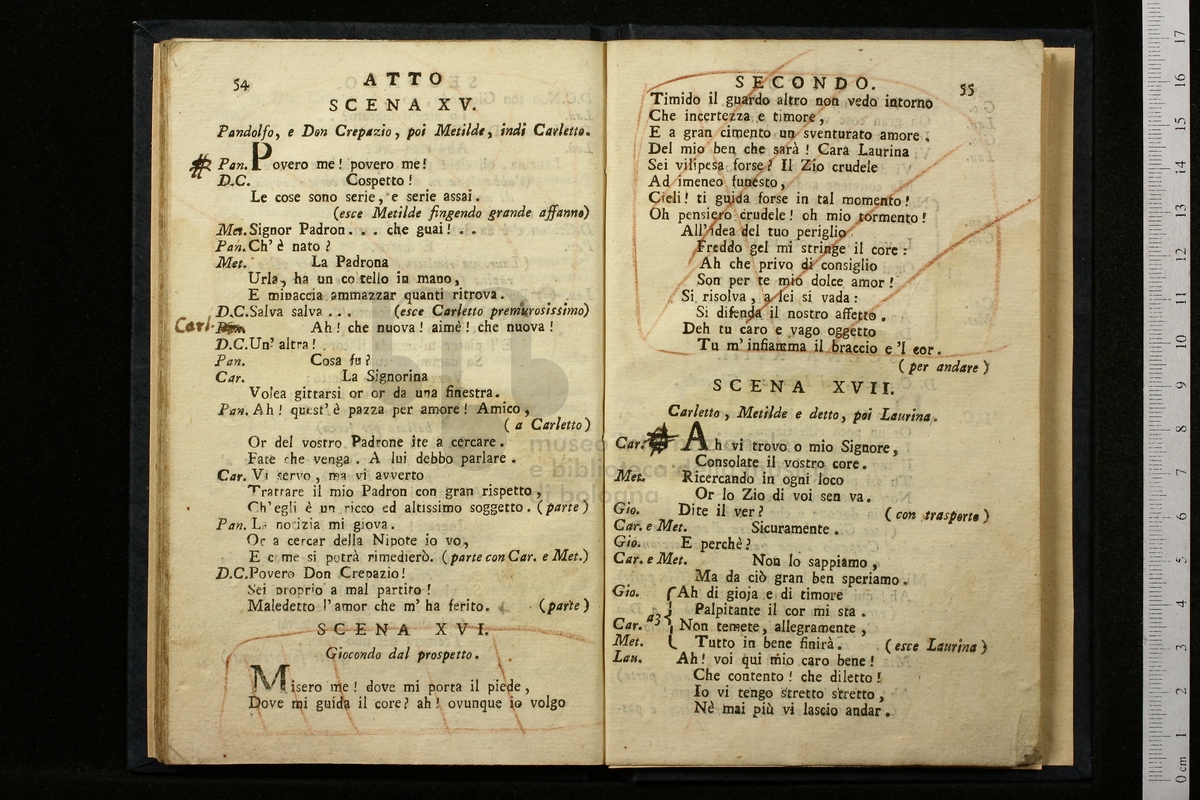 54 ATTO
SCENA XV.
Pandolfo, e Don Crepazio, poi Metilde, indi Carletto.
Pan. Povero me! povero me!
D.C. Cospetto!
Le cose sono serie, e serie assai.
(esce Metilde fingendo grande affanno)
Met. Signor Padron... che guai!..
Pan. Ch' è nato?
Met. La Padrona
Urla, ha un coltello in mano,
E minaccia ammazzar quanti ritrova.
D.C. Salva salva... (esce Carletto premurosissimo)
Carl. Ah! che nuova! aimè! che nuova!
D.C. Un' altra!
Pan. Cosa fu?
Car. La Signorina
Volea gittarsi or or da una finestra.
Pan. Ah! quest' è pazza per amore! Amico,
(a Carletto)
Or del vostro Padrone ite a cercare.
Fate che venga. A lui debbo parlare.
Car. Vi servo, ma vi avverto
Trattare il mio Padron con gran rispetto,
Ch' egli è un ricco ed altissimo soggetto. (parte)
Pan. La notizia mi giova.
Or a cercar della Nipote io vo,
E come si potrà rimedierò. (parte con Car. e Met.)
D.C. Povero Don Crepazio!
Sei proprio a mal partito!
Maledetto l'amor che m' ha ferito. (parte)
SCENA XVI.
Giocondo dal prospetto.
Misero me! dove mi porta il piede,
Dove mi guida il core? ah! ovunque io volgo
SECONDO. 55
Timido il guardo altro non vedo intorno
Che incertezza e timore,
E a gran cimento un sventurato amore.
Del mio ben che sarà! Cara Laurina
Sei vilipesa forse? Il Zio crudele
Ad imeneo funesto,
Cieli! ti guida forse in tal momento!
Oh pensiero crudele! oh mio tormento!
All' idea del tuo periglio
Freddo gel mi stringe il core:
Ah che privo di consiglio
Son per te mio dolce amor!
Si risolva, a lei si vada:
Si difenda il nostro affetto.
Deh tu caro e vago oggetto
Tu m' infiamma il braccio e 'l cor.
(per andare)
SCENA XVII.
Carletto, Metilde e detto, poi Laurina.
Car. Ah vi trovo o mio Signore,
Consolate il vostro core.
Met. Ricercando in ogni loco
Or lo Zio di voi sen va.
Gio. Dite il ver? (con trasporto)
Car. e Met. Sicuramente.
Gio. E perchè?
Car. e Met. Non lo sappiamo,
Ma da ciò gran ben speriamo.
Gio. Ah di gioja e di timore
Palpitante il cor mi sta.
Car. a3 Non temete, allegramente,
Met. Tutto in bene finirà. (esce Laurina)
Lau. Ah! voi qui mio caro bene!
Che contento! che diletto!
Io vi tengo stretto stretto,
Nè mai più vi lascio andar.
museo
e biblioteca della musica
di bologna
0 cm 1 2 3 4 5 6 7 8 9 10 11 12 13 14 15 16 17